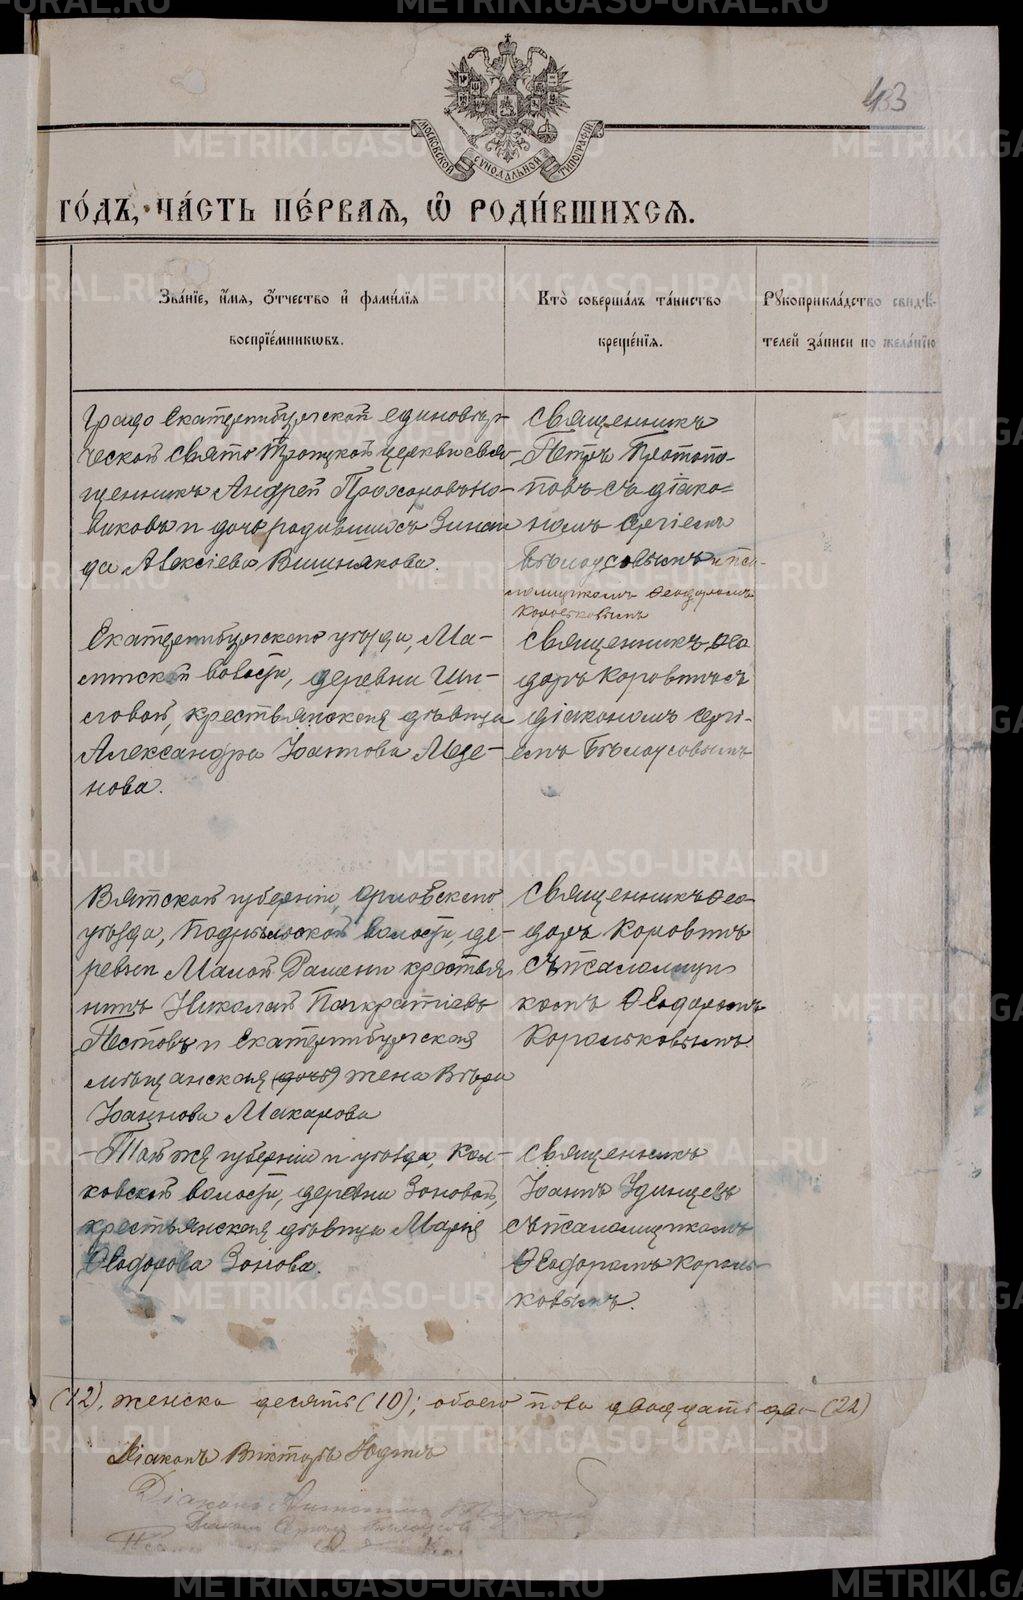 433
МОСКОВСКОЙ СУНОДАЛЬНОЙ ТИПОГРАФІИ
ГО́ДЪ, ЧА́СТЬ ПЕ́РВАѦ, Ѡ҆ РОДИ́ВШИХСѦ.
Зва́нїе, и҆́мѧ, ѻ҆́тчество и҆ фами́лїѧ
воспрїе́мникѡвъ.
Кто̀ соверша́лъ та́инство
креще́нїѧ.
Рꙋкоприкла́дство свидѣ́-
телей за́писи по жела́нїю
Градо Екатеринбургской единовѣр-
ческой Свято Троицкой церкви свя-
щенникъ Андрей Прохоровъ Но-
виковъ и дочь родившихъ Зинаи
да Алексіева Вишнякова.
Священникъ
Петръ Протопо-
повъ съ діако-
номъ Сергіемъ
Бѣлоусовымъ и пса-
ломщикомъ Ѳеодоромъ
Корольковымъ
Екатеринбургскаго уѣзда, Ма-
минской волости, деревни Ши-
ловой, крестьянская дѣвица
Александра Іоаннова Меде-
нова.
Священникъ Ѳео
доръ Коровинъ съ
діакономъ Сергі-
емъ Бѣлоусовымъ
Вятской губерніи, Орловскаго
уѣзда, Подрѣльской волости, де-
ревни Малой Рамени крестья
нинъ Николай Панкратіевъ
Пестовъ и Екатеринбургская
мѣщанская (дочь) жена Вѣра
Іоаннова Макарова
Священникъ Ѳео-
доръ Коровинъ
съ псаломщи
комъ Ѳеодоромъ
Корольковымъ.
Той же губерніи и уѣзда, Кол-
ковской волости, деревни Зоновой,
крестьянская дѣвица Марія
Ѳеодорова Зонова.
Священникъ
Іоаннъ Удинцевъ
съ псаломщикомъ
Ѳеодоромъ Король-
ковымъ.
(12), женска десять (10); обоего пола двадцать два (22)
Діаконъ Викторъ Юдинъ
Діаконъ
Діаконъ Сергій Бѣлоусовъ
METRIKI.GASO-URAL.RU